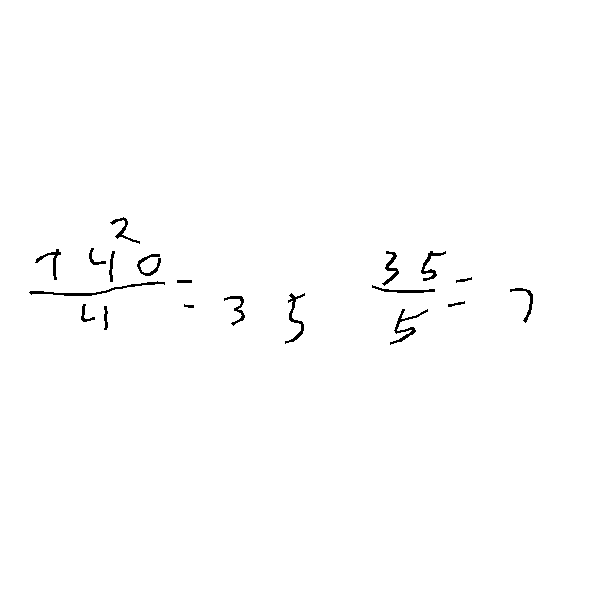 2
140/4 = 35 35/5 = 7